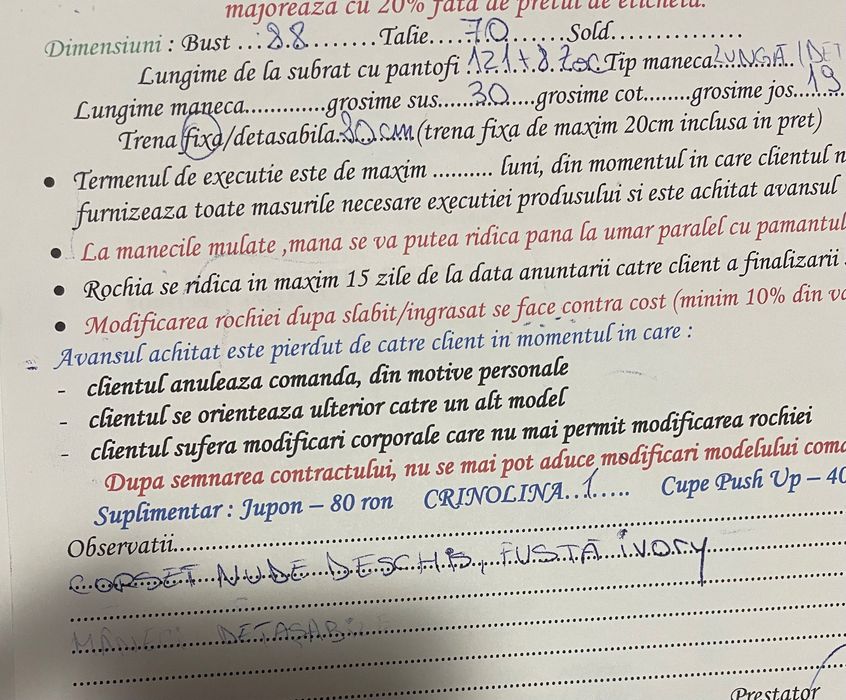 majoreaza cu 20% fata de pretul de eticheta.
Dimensiuni : Bust ...88........Talie....70.......Sold...............
Lungime de la subrat cu pantofi .121+8 toc Tip maneca LUNGĂ (DET
Lungime maneca.............grosime sus.....30.....grosime cot........grosime jos...19
Trena fixa/detasabila..80cm (trena fixa de maxim 20cm inclusa in pret)
• Termenul de executie este de maxim .......... luni, din momentul in care clientul
furnizeaza toate masurile necesare executiei produsului si este achitat avansul
• La manecile mulate ,mana se va putea ridica pana la umar paralel cu pamantul
• Rochia se ridica in maxim 15 zile de la data anuntarii catre client a finalizarii
• Modificarea rochiei dupa slabit/ingrasat se face contra cost (minim 10% din
Avansul achitat este pierdut de catre client in momentul in care :
- clientul anuleaza comanda, din motive personale
- clientul se orienteaza ulterior catre un alt model
- clientul sufera modificari corporale care nu mai permit modificarea rochiei
Dupa semnarea contractului, nu se mai pot aduce modificari modelului
Suplimentar : Jupon – 80 ron CRINOLINA..1..... Cupe Push Up – 40
Observatii
CORSET NUDE DESCHIS, FUSTĂ IVORY
MÂNECI DETAȘABILE
Prestator